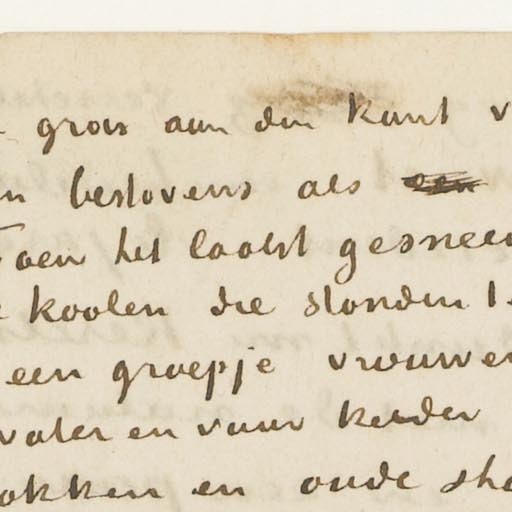 gras aan den kant v
n bestovens als een
Toen het laatst gesneeu
koolen die stonden t
een groepje vrouwen
water en vuur kelder
okken en oude sho